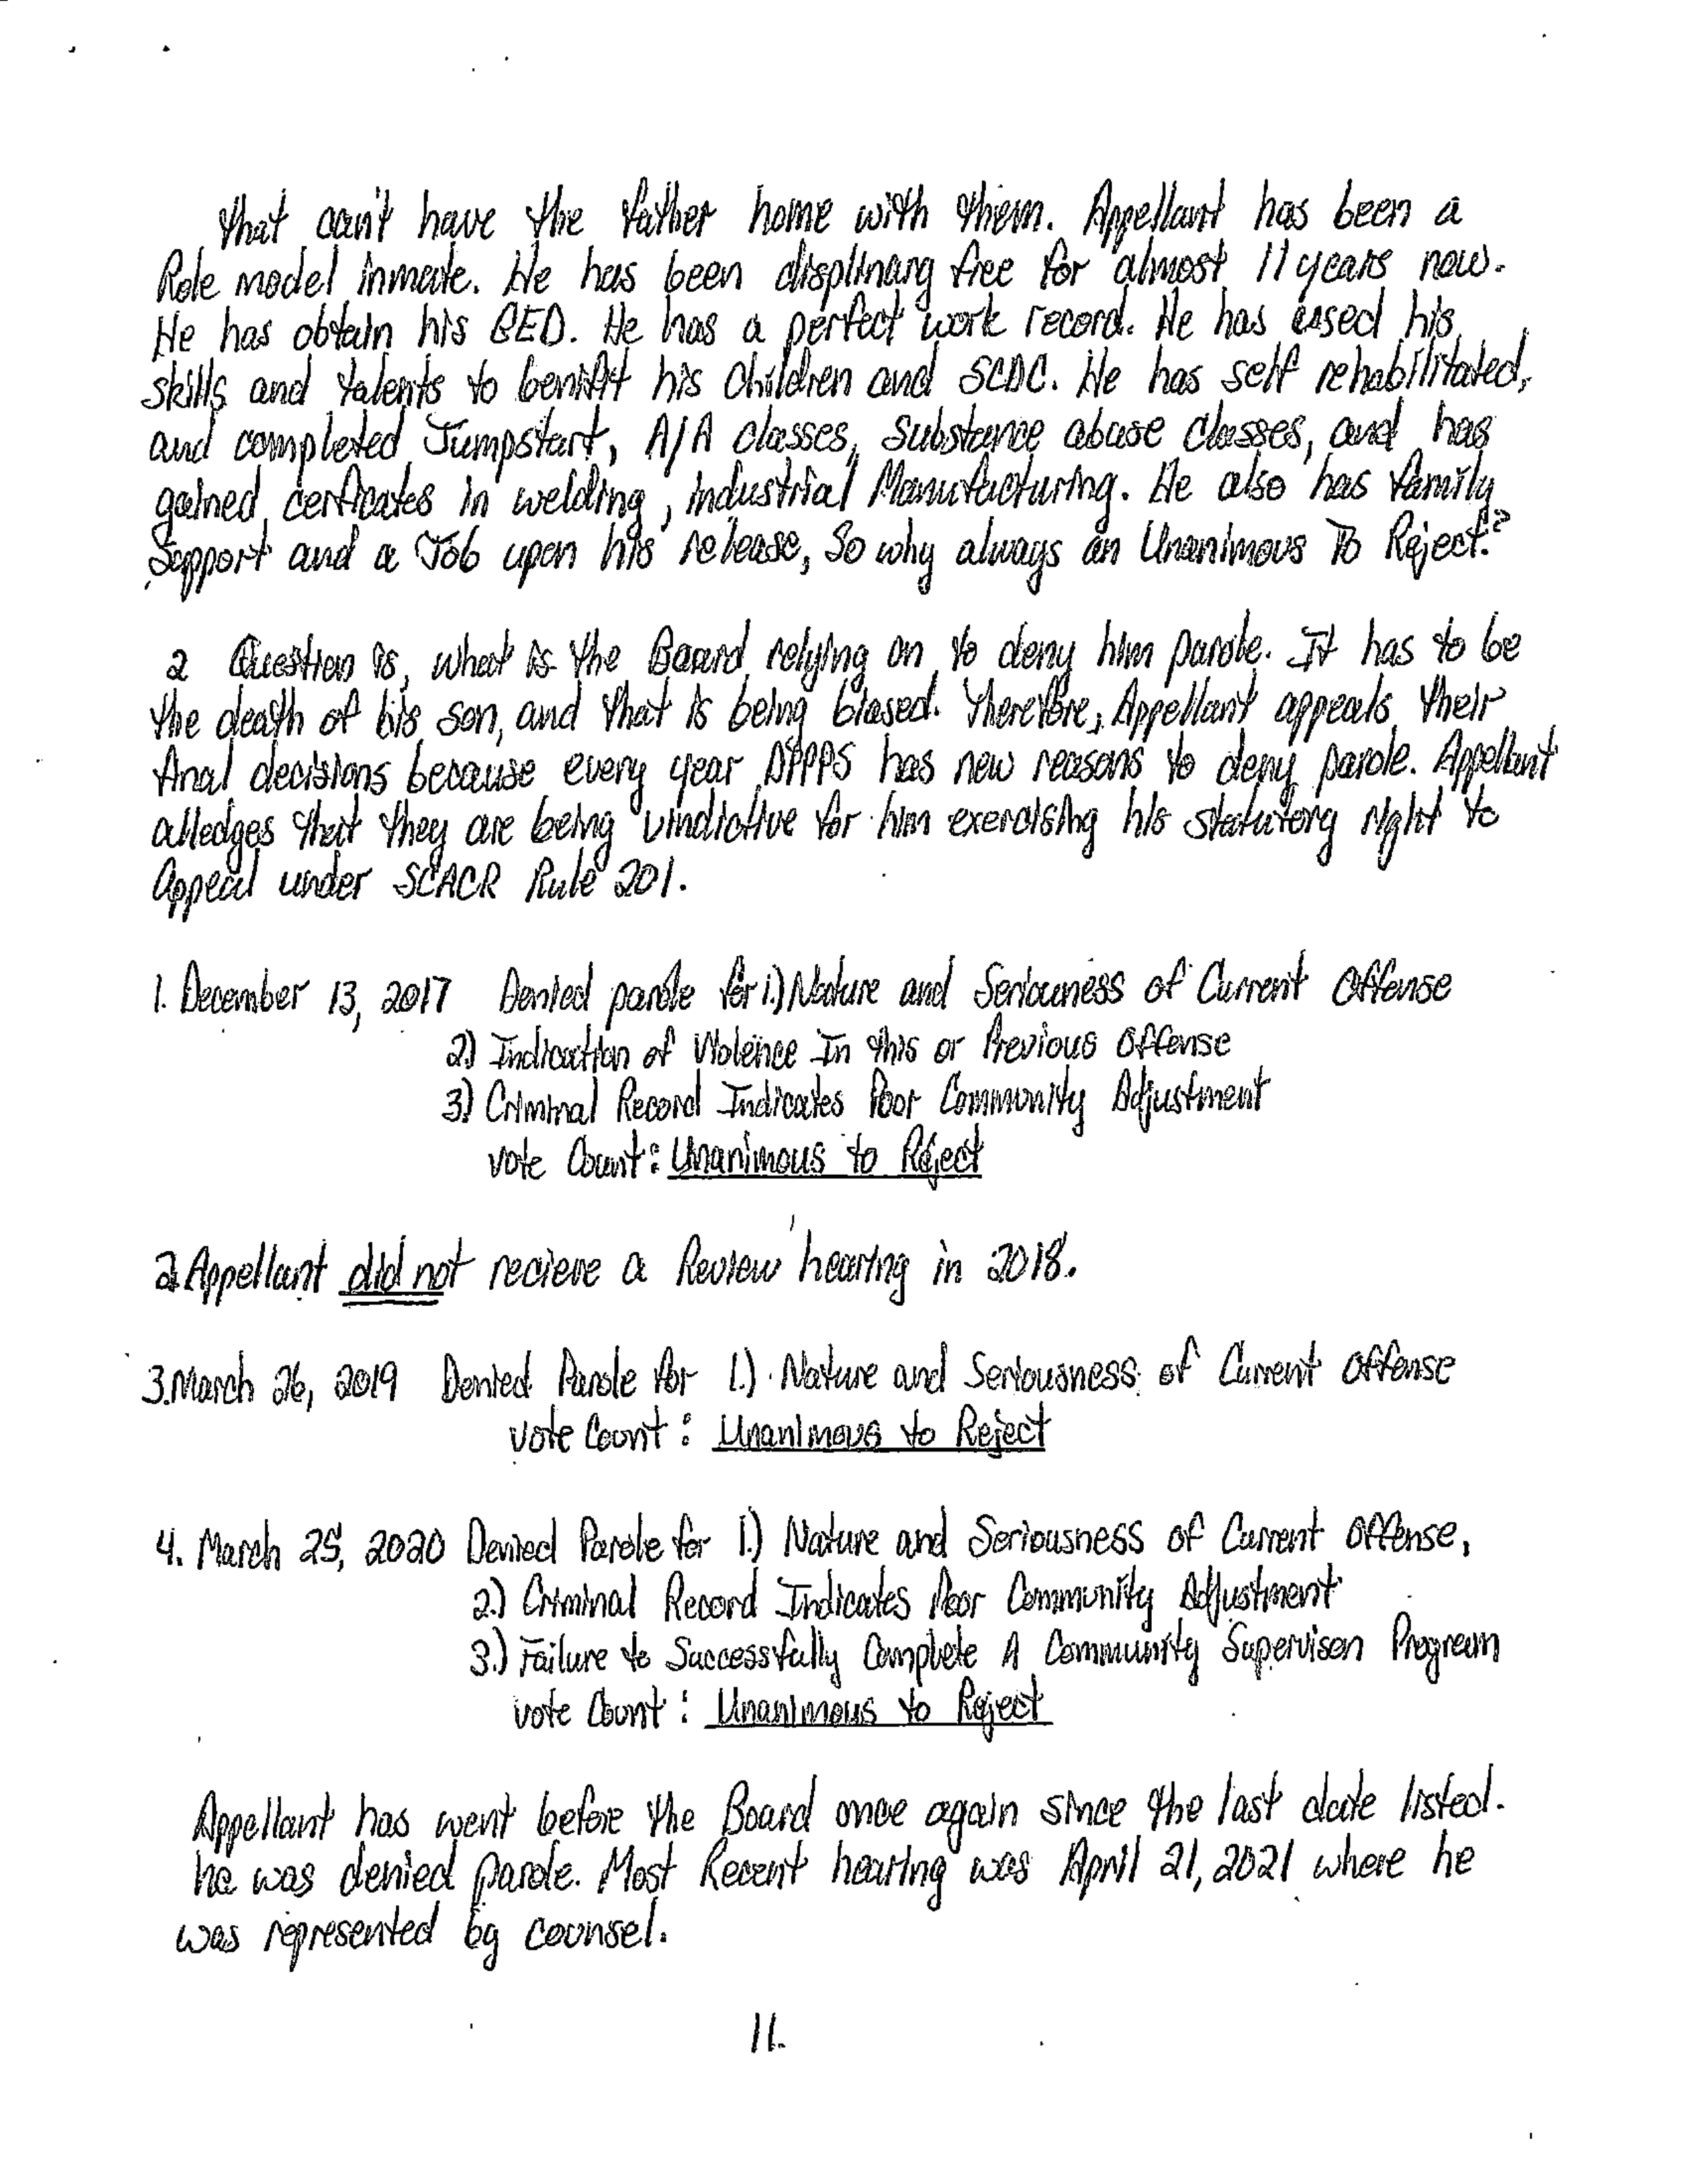 that can't have the father home with them. Appellant has been a
Role model inmate. He has been displinary free for almost 11 years now.
He has obtain his GED. He has a perfect work record. He has used his
skills and talents to benifit his Children and SCDC. He has self rehabilitated,
and completed Jumpstart, A/A classes, Substance abuse Classes, and has
gained certicates in welding, Industrial Manufacturing. He also has family
Support and a Job upon his release, So why always an Unanimous To Reject.?
2 Question is, what is the Board relying on to deny him parole. It has to be
the death of his son, and that is being biased. Therefore, Appellant appeals their
final decisions because every year DPPPS has new reasons to deny parole. Appellant
alledges that they are being vindictive for him exercising his statutory right to
Appeal under SCACR Rule 201.
1. December 13, 2017 Denied parole for 1.) Nature and Seriouness of Current Offense
2.) Indication of Violence In this or Previous Offense
3.) Criminal Record Indicates Poor Community Adjustment
Vote Count: Unanimous to Reject
2. Appellant did not recieve a Review hearing in 2018.
3. March 26, 2019 Denied Parole for 1.) Nature and Seriousness of Current Offense
Vote Count: Unanimous to Reject
4. March 25, 2020 Denied Parole for 1.) Nature and Seriousness of Current Offense,
2.) Criminal Record Indicates Poor Community Adjustment
3.) Failure to Successfully Complete A Community Supervison Program
Vote Count: Unanimous to Reject
Appellant has went before the Board once again since the last date listed.
he was denied parole. Most Recent hearing was April 21, 2021 where he
was represented by counsel.
11.